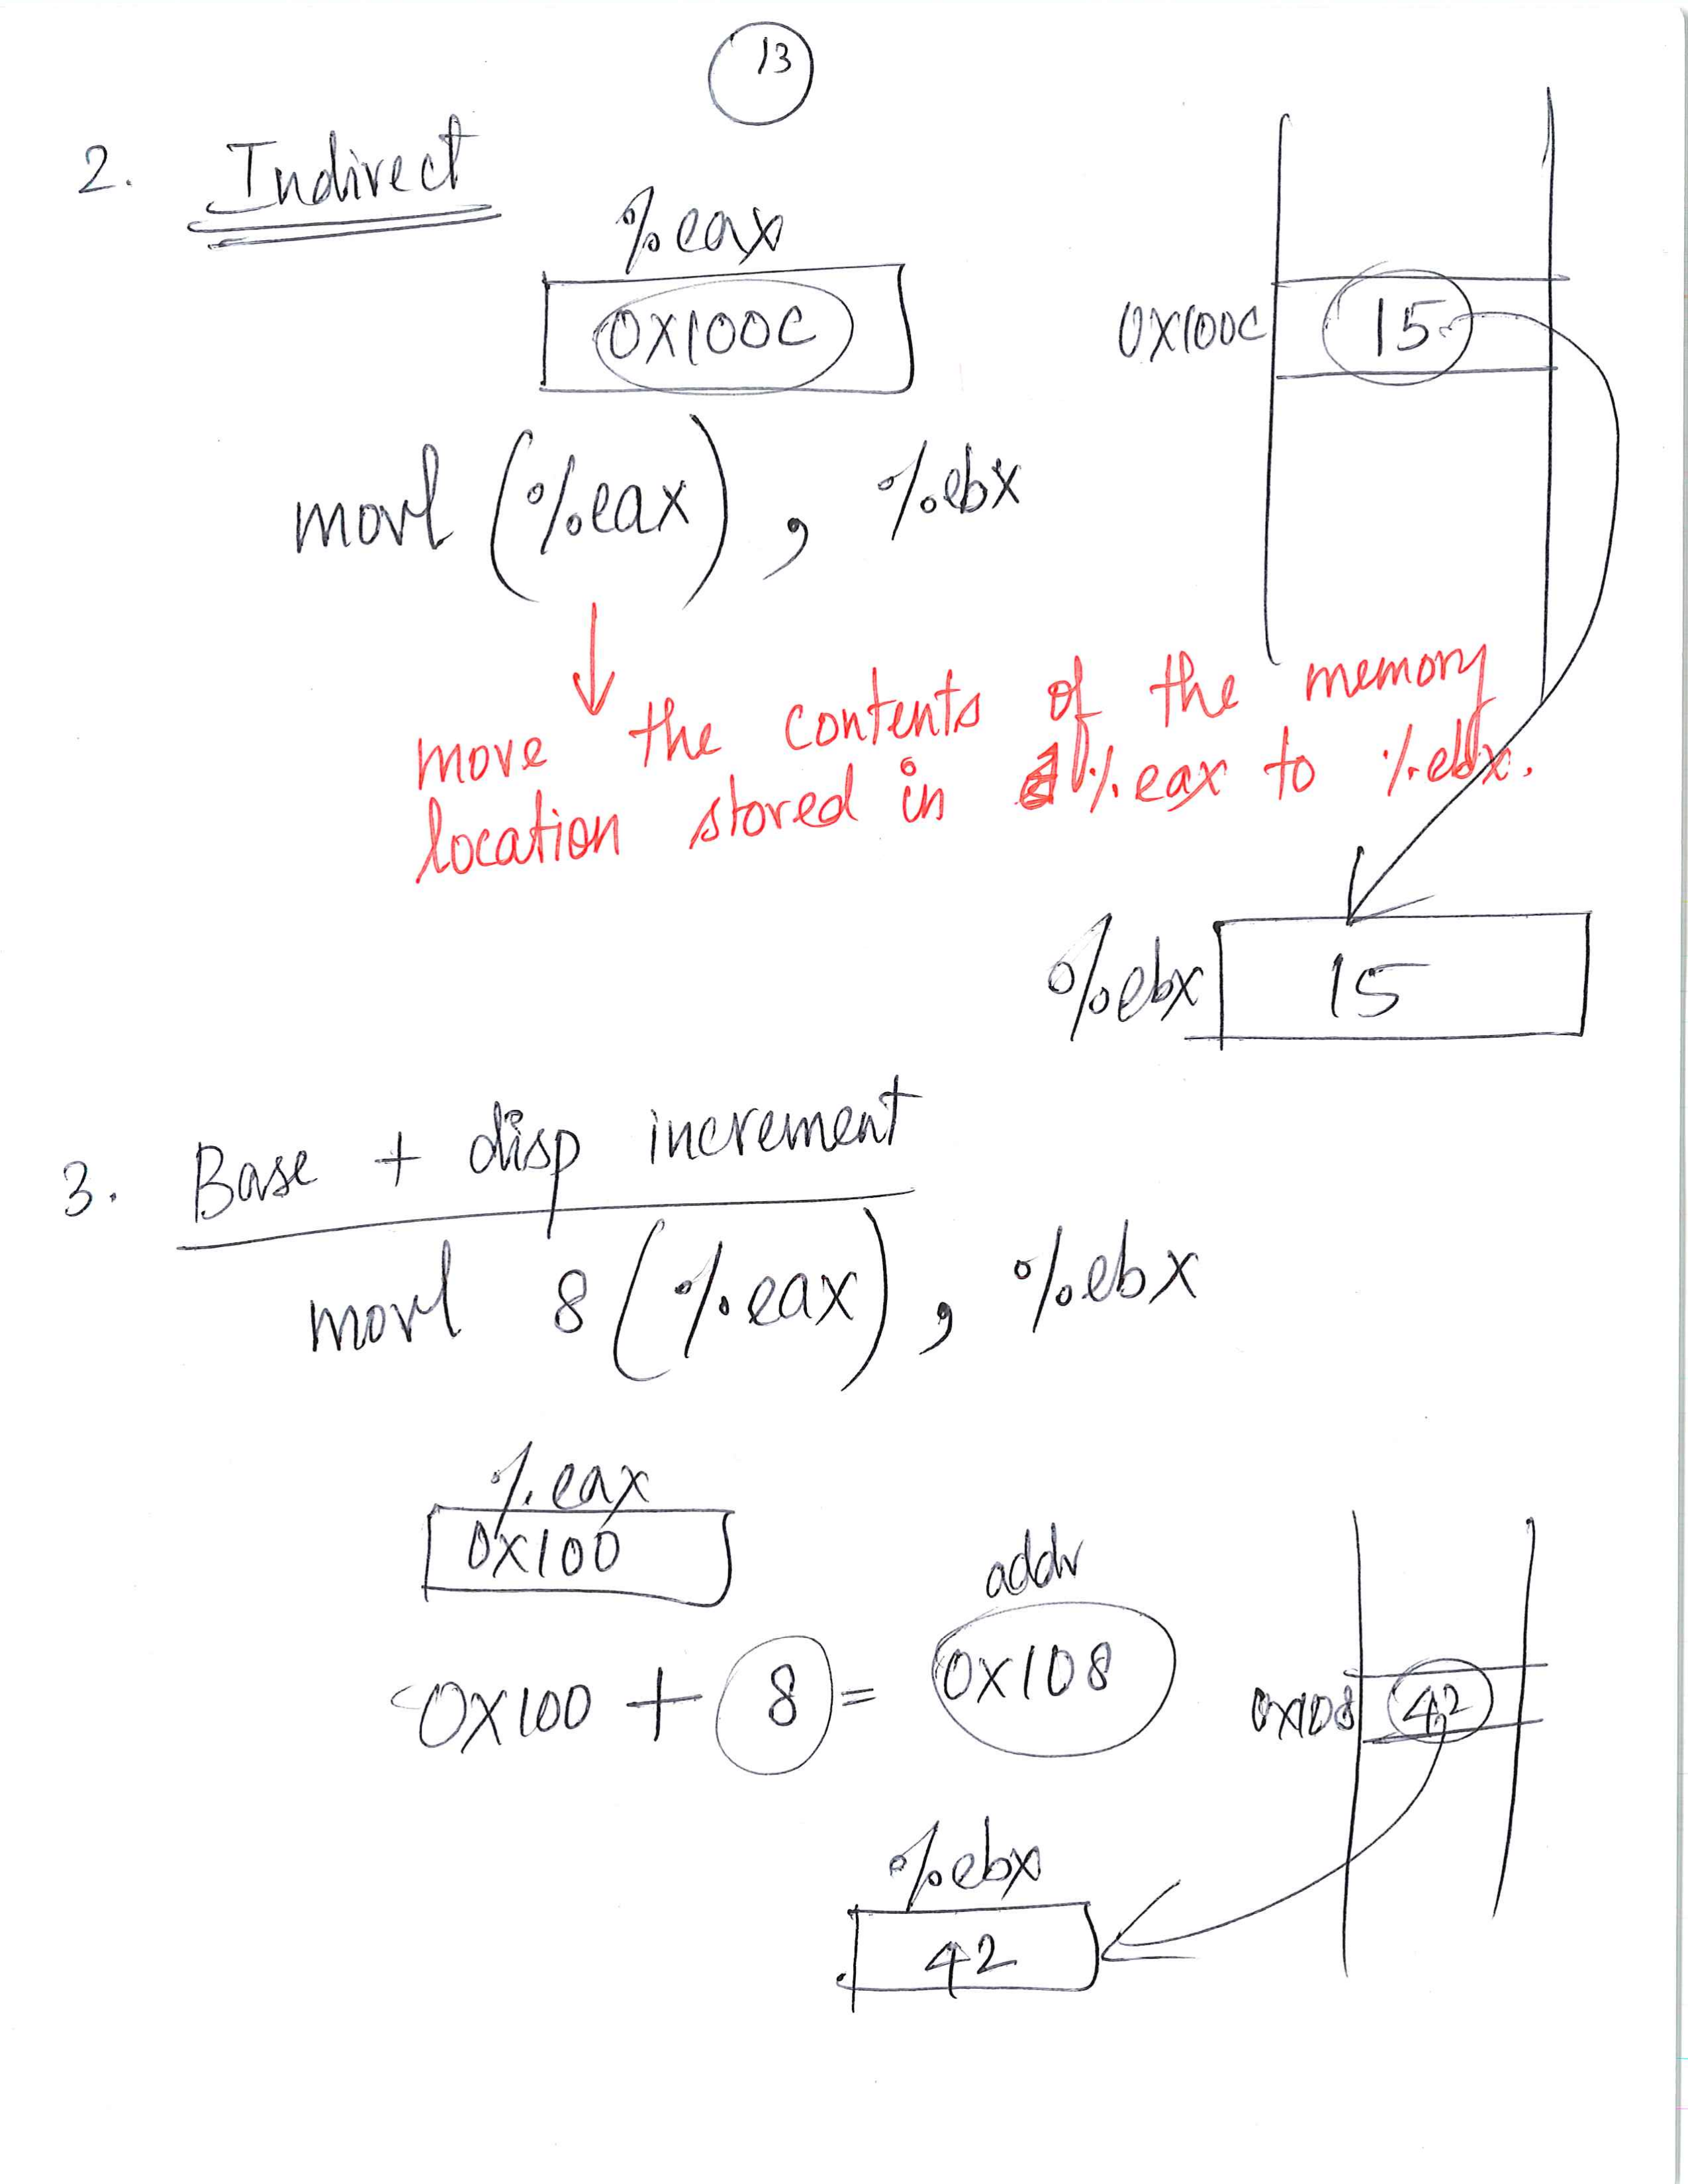 13
2. Indirect
%eax
0X100C
0X100C 15
movl (%eax), %ebx
move the contents of the memory
location stored in %eax to %ebx.
%ebx 15
3. Base + disp increment
movl 8(%eax), %ebx
%eax
0X100
addr
0X100 + 8 = 0X108
0X108 42
%ebx
42